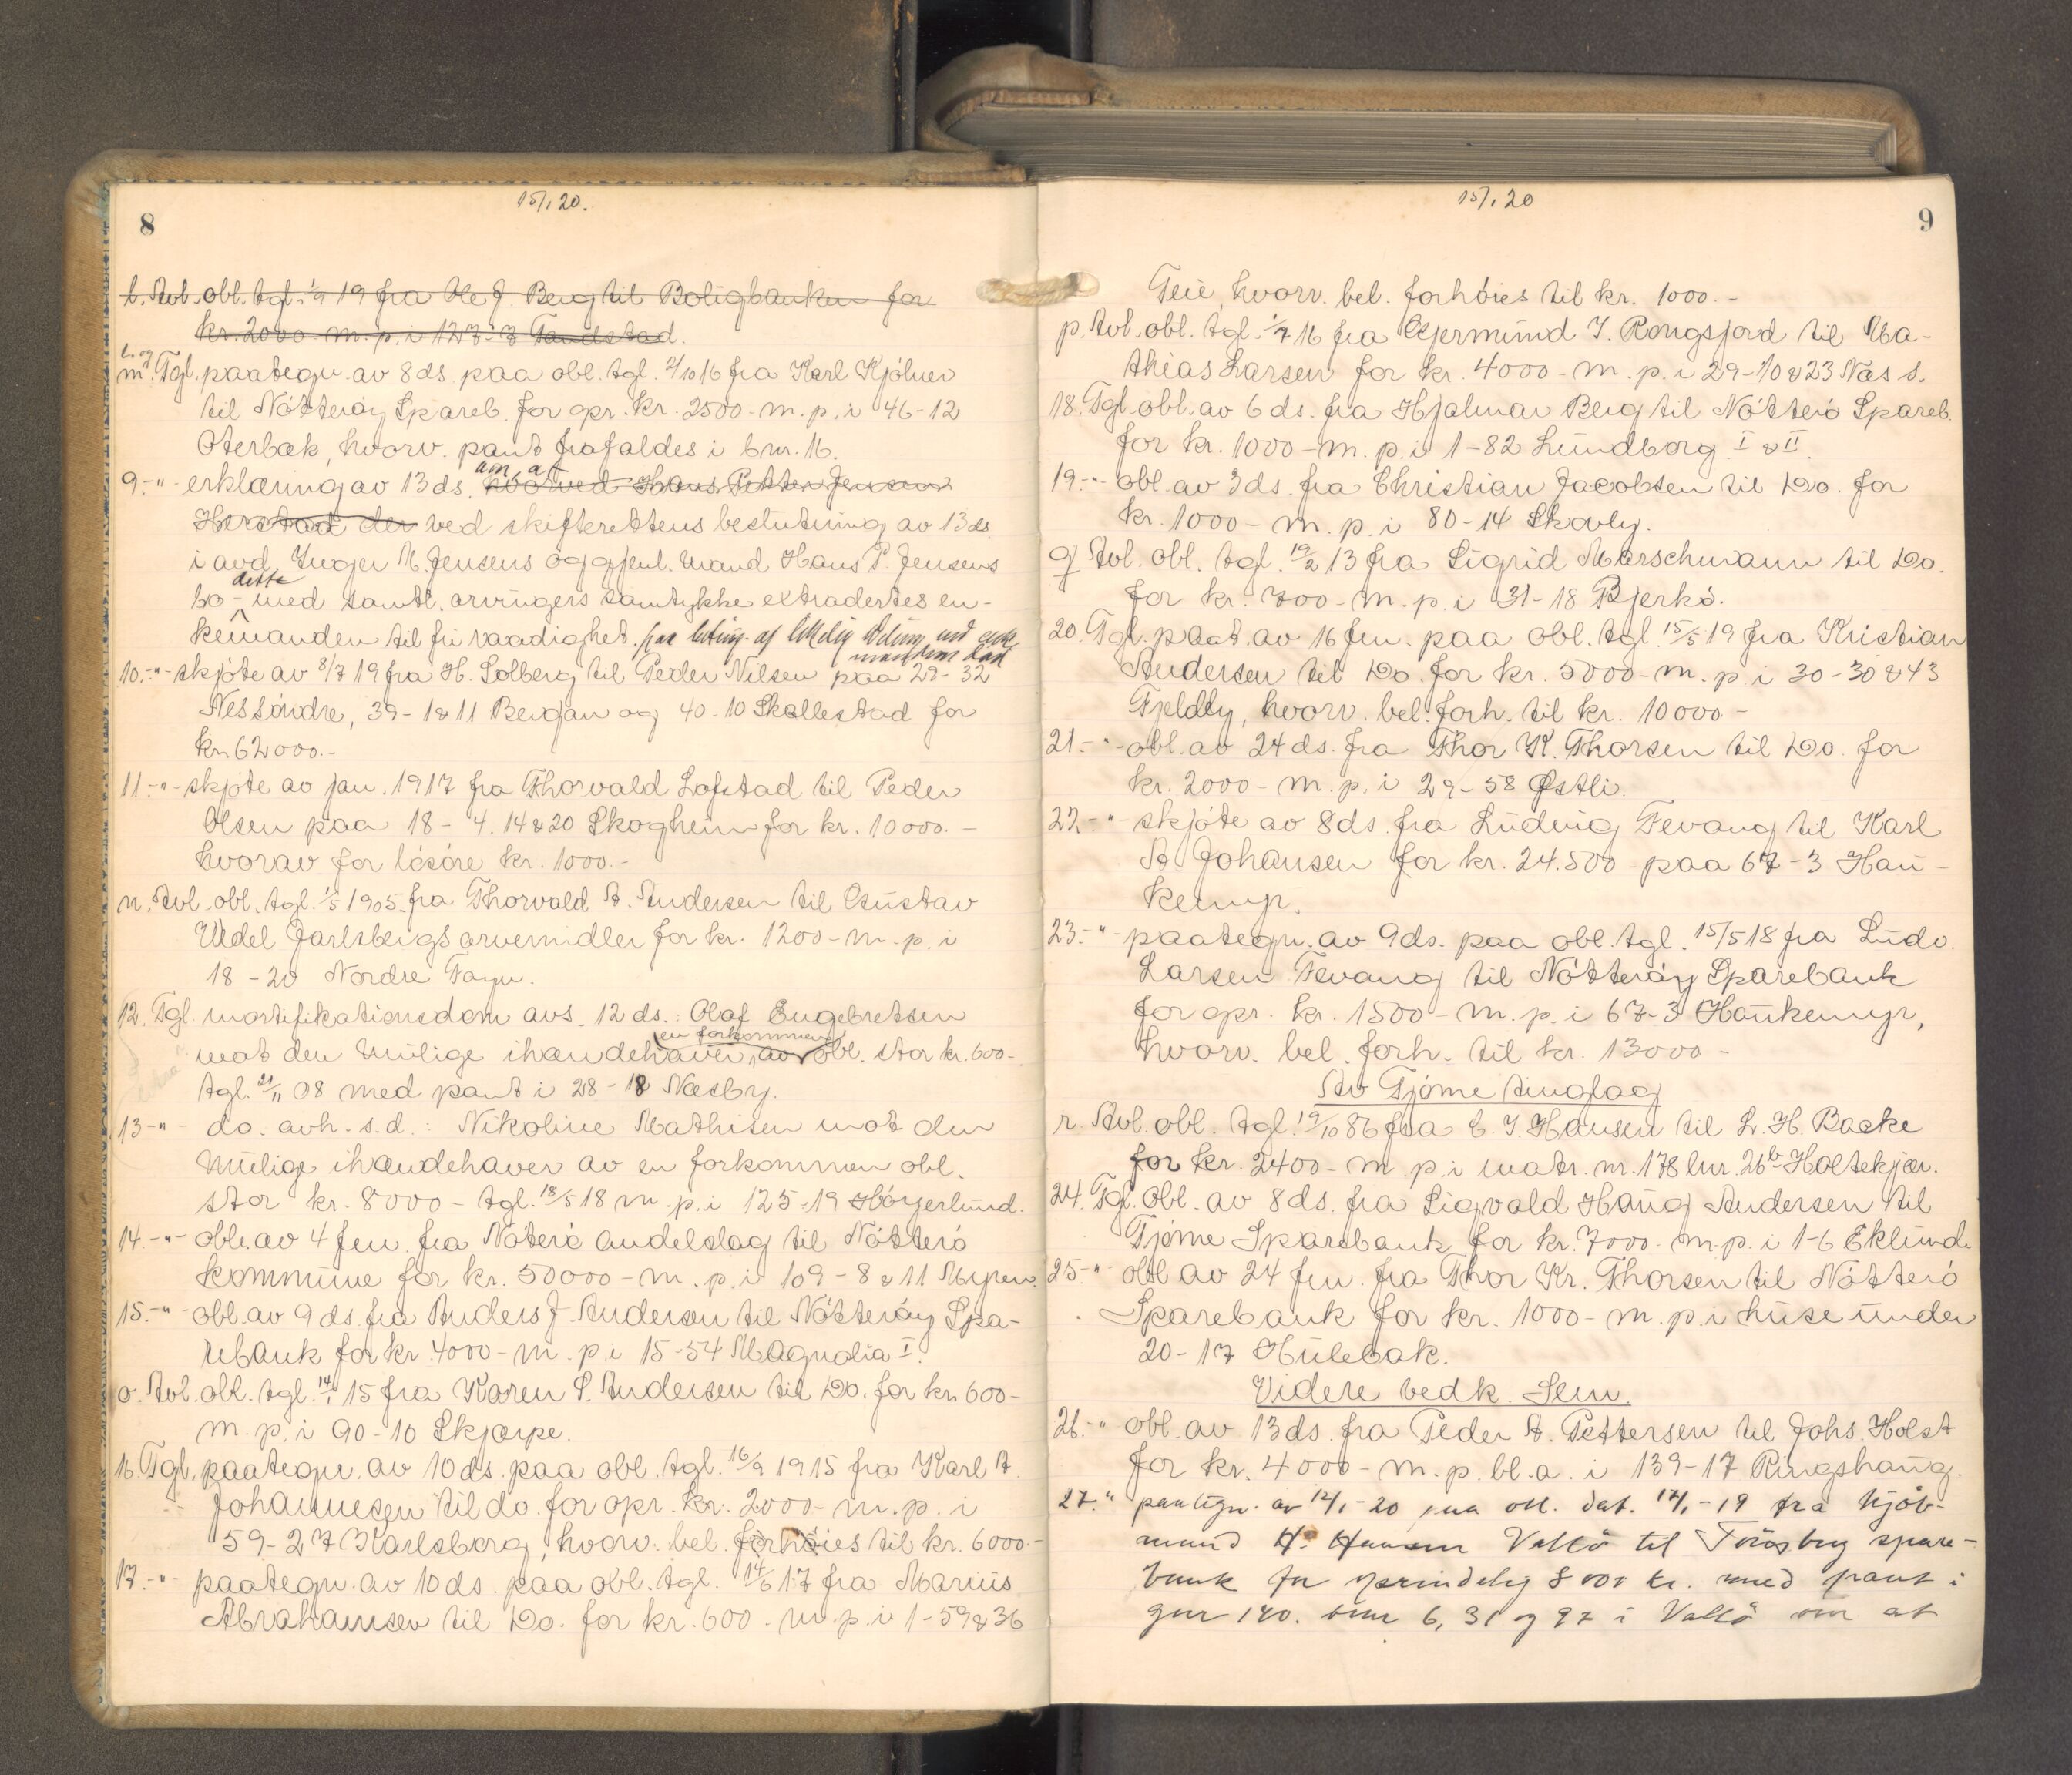 15/1 20.
8
l. Avl. obl. tgl. 1/9 19 fra Ole J. Berg til Boligbanken for
kr. 2000 m. p. i 123-3 Tandstad.
l. og
m. Tgl. paategn. av 8 ds. paa obl. tgl. 2/10 16 fra Karl Kjølner
til Nøtterøy Spareb. for opr. kr. 2500 - m. p. i 46-12
Oterbæk, hvorv. pant frafaldes i bnr. 16.
9.-"- erklæring av 13 ds. om, at hvorved Hans Petter Jensen
der ved skifterettens beslutning av 13 ds.
i avd. Inger M. Jensens og gjenl. mand Hans P. Jensens
bo - dette med samtl. arvingers samtykke extradertes en-
kemanden til fri raadighet.
10.-"- skjøte av 8/7 19 fra H. Solberg til Peder Nilsen paa 29-32
Nes søndre, 39-1 & 11 Bergan og 40-10 Skallestad for
kr. 62000.-
11.-"- skjøte av jan. 1917 fra Thorvald Lofstad til Peder
Olsen paa 18-4. 14 & 20 Skogheim for kr. 10000.-
hvorav for løsøre kr. 1000.-
n. Avl. obl. tgl. 1/5 1905 fra Thorvald A. Andersen til Gustav
Wedel Jarlsbergs arvemidler for kr. 1200 - m. p. i
18-20 Nordre Fayn.
12. Tgl. mortifikationsdom avs. 12 ds.: Olaf Engebretsen
mot den mulige ihændehaver av en forkommen obl. stor kr. 600-
tgl. 21/11 08 med pant i 28-18 Næsby.
13-"- do. avh. s.d.: Nikoline Mathisen mot den
mulige ihændehaver av en forkommen obl.
stor kr. 8000 - tgl. 18/5 18 m. p. i 125-19 Høyerlund.
14.-"- obl. av 4 fen. fra Nøterø andelslag til Nøtterø
kommune for kr. 50000 - m. p. i 109-8 & 11 Myren.
15.-"- obl. av 9 ds. fra Anders J. Andersen til Nøtterøy Spa-
rebank for kr. 4000 - m. p. i 15-54 Magnolia I.
o. Avl. obl. tgl. 14/1 15 fra Karen S. Andersen til Do. for kr. 600-
m. p. i 90-10 Skjærpe.
16. Tgl. paategn. av 10 ds. paa obl. tgl. 16/9 1915 fra Karl A.
Johannesen til do. for opr. kr. 2000 - m. p. i
59-27 Karlsborg, hvorv. bel. forhøies til kr. 6000.-
17.-"- paategn. av 10 ds. paa obl. tgl. 14/6 17 fra Marius
Abrahamsen til Do. for kr. 600 - m. p. i 1-59 & 36
15/1 20
9
Teie, hvorv. bel. forhøies til kr. 1000.-
p. Avl. obl. tgl. 1/7 16 fra Gjermund I. Rongsjord til Ma-
thias Larsen for kr. 4000 - m. p. i 29-10 & 23 Næs s.
18. Tgl. obl. av 6 ds. fra Hjalmar Berg til Nøtterø Spareb.
for kr. 1000 - m. p. i 1-82 Lundborg I & II.
19.-"- obl. av 3 ds. fra Christian Jacobsen til Do. for
kr. 1000 - m. p. i 80-14 Skovly.
q Avl. obl. tgl. 19/2 13 fra Sigrid Marschmann til Do.
for kr. 700 - m. p. i 31-18 Bjerkø.
20. Tgl. paat. av 16 fen. paa obl. tgl. 15/5 19 fra Kristian
Andersen til Do. for kr. 5000 - m. p. i 30-30 & 43
Fjeldly, hvorv. bel. forh. til kr. 10000-
21.-"- obl. av 24 ds. fra Thor K. Thorsen til Do. for
kr. 2000 - m. p. i 29-58 Østli.
22.-"- skjøte av 8 ds. fra Ludvig Fevang til Karl
A. Johansen for kr. 24.500 - paa 67-3 Hau-
kemyr.
23.-"- paategn. av 9 ds. paa obl. tgl. 15/5 18 fra Ludv.
Larsen Fevang til Nøtterøy Sparebank
for opr. kr. 1500 - m. p. i 67-3 Haukemyr,
hvorv. bel. forh. til kr. 13000-
Av Tjøme tinglag
r. Avl. obl. tgl. 19/10 86 fra C. I. Hansen til L. H. Backe
for kr. 2400 - m. p. i matr. nr. 178 lnr. 26b Holtekjær.
24. Tgl. obl. av 8 ds. fra Sigvald Haug Andersen til
Tjøme Sparebank for kr. 7000 - m. p. i 1-6 Eklund.
25.-"- obl. av 24 fen. fra Thor Kr. Thorsen til Nøtterø
Sparebank for kr. 1000 - m. p. i huse under
20-17 Hulebak.
Videre vedk. Sem.
26.-"- obl. av 13 ds. fra Peder A. Pettersen til Johs. Holst
for kr. 4000 - m. p. bl. a. i 139-17 Ringshaug.
27." paategn. av 12/1-20 paa obl. dat. 12/1-19 fra kjøb-
mand H. Hansen Vallø til Tønsberg spare-
bank for oprindelig 8000 kr. med pant i
gnr 140. bnr 6, 31 og 97 i Vallø om at